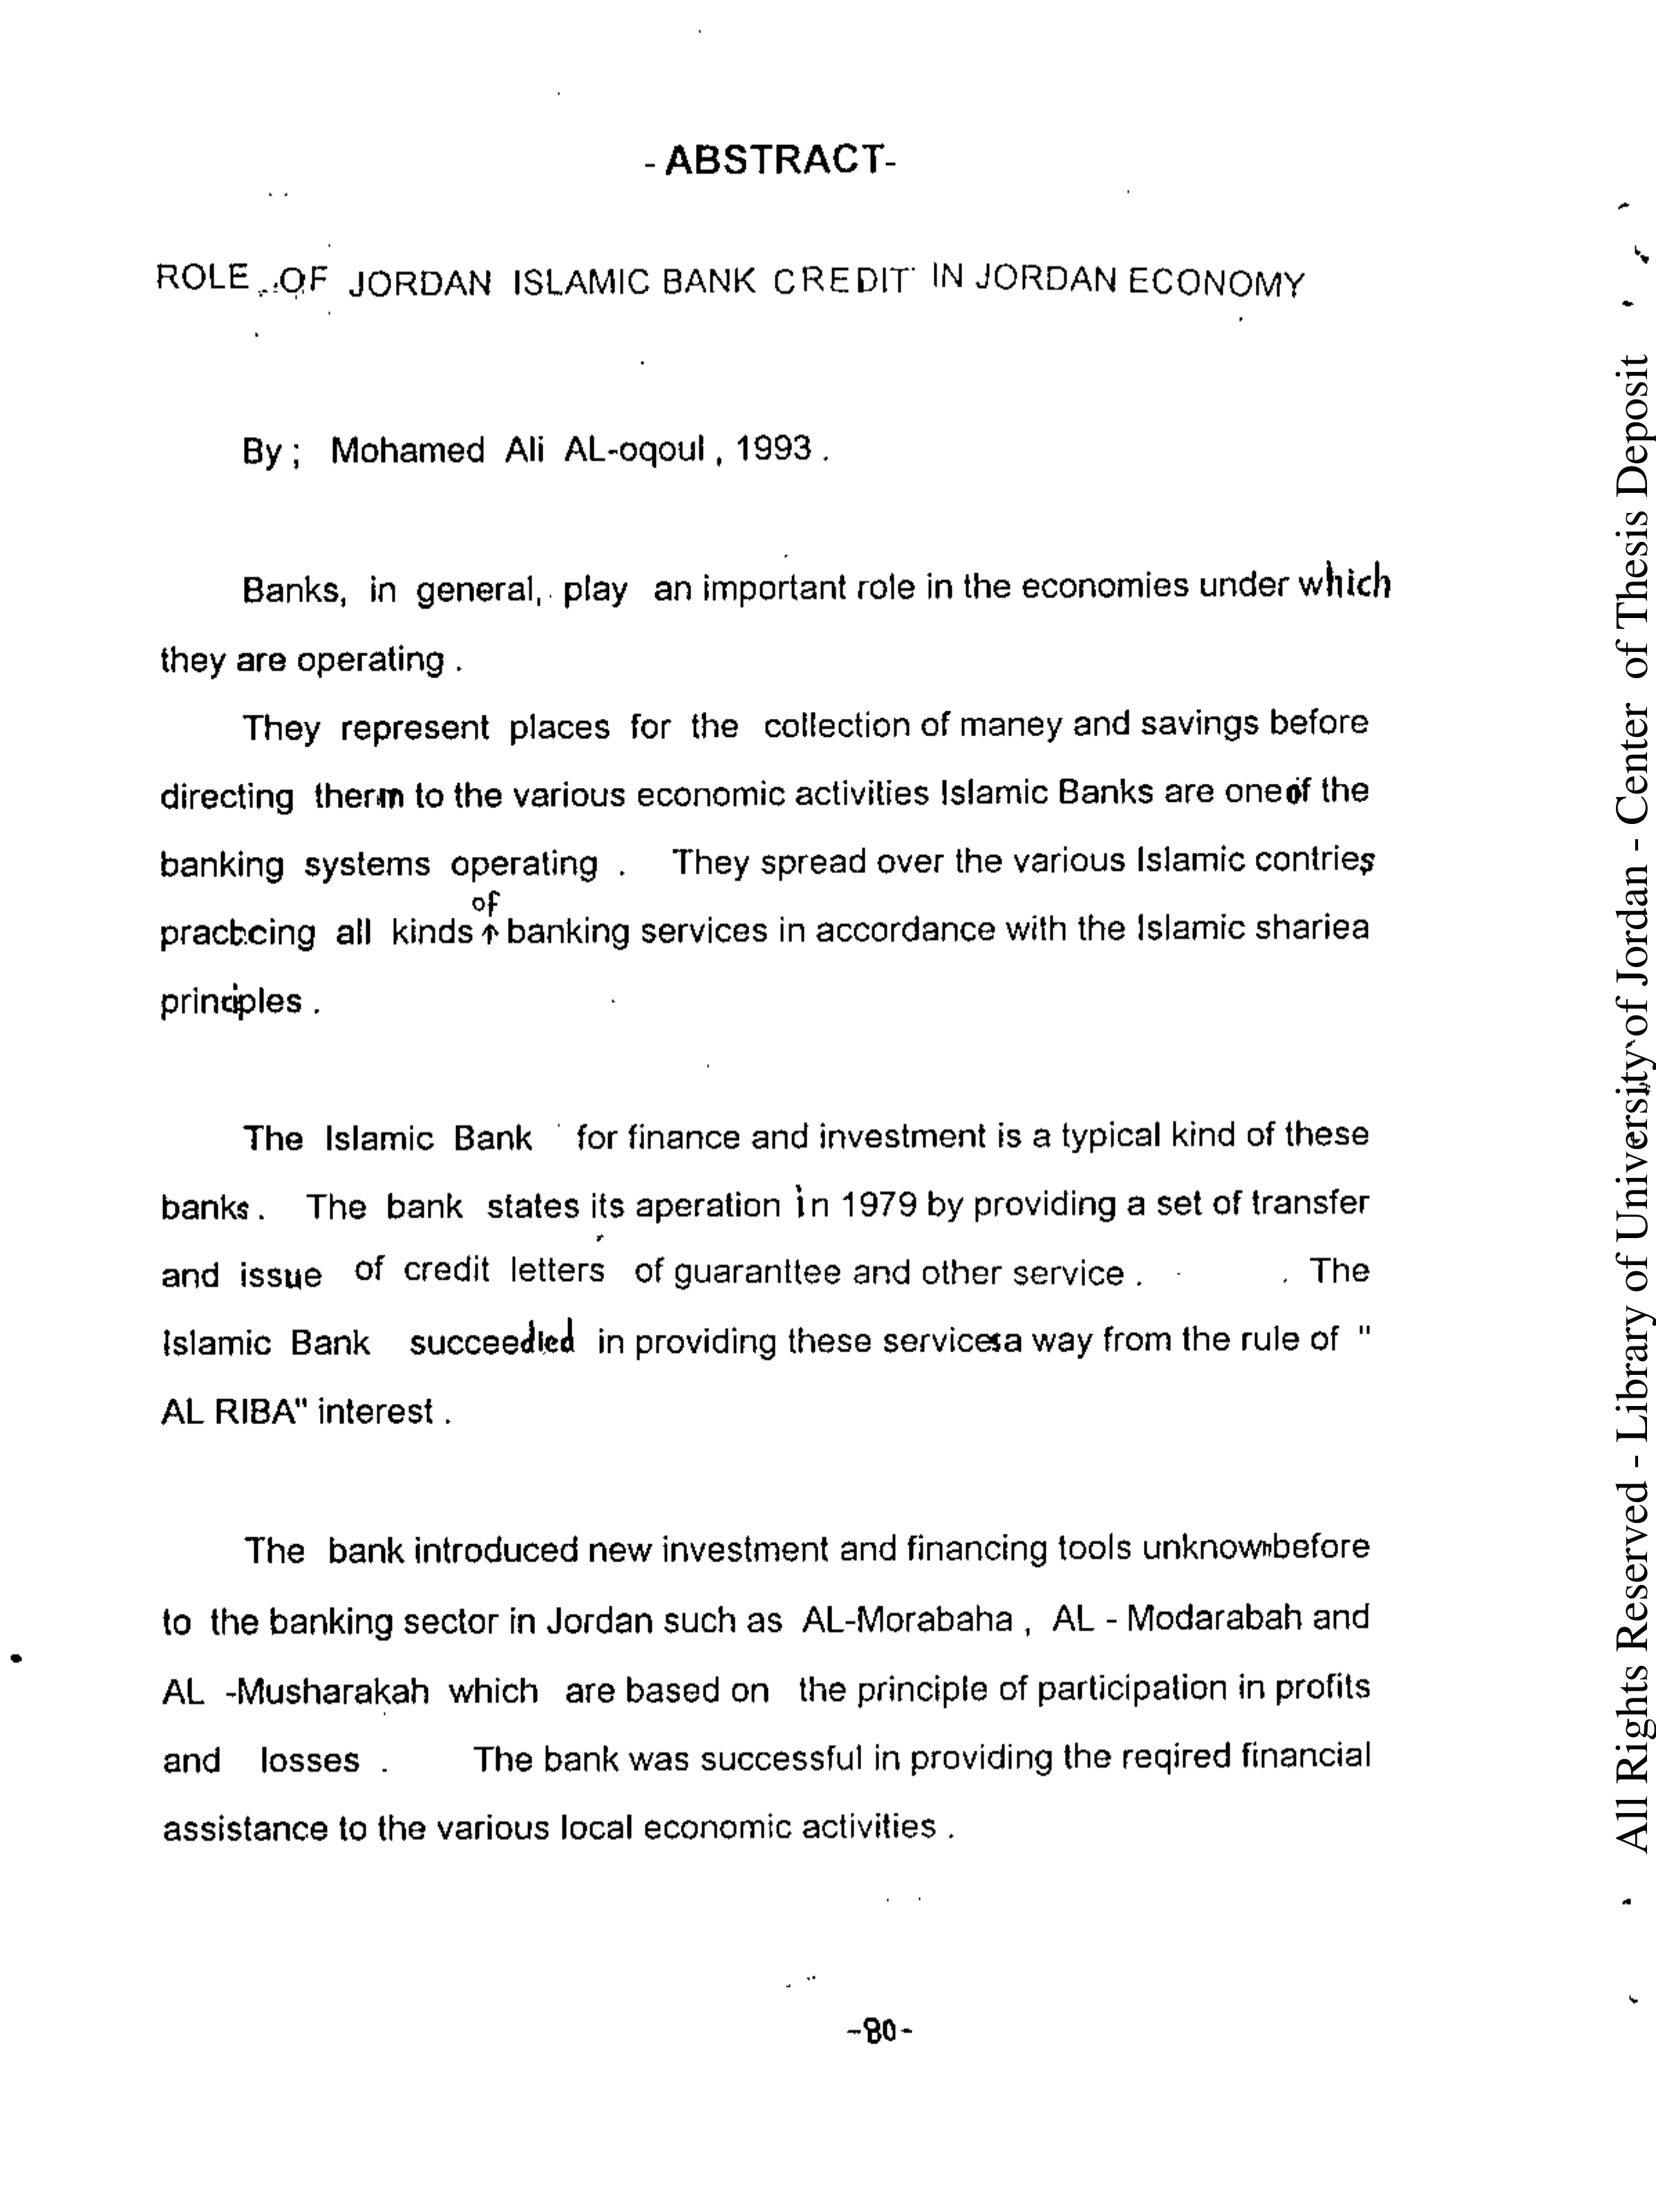 - ABSTRACT-
ROLE OF JORDAN ISLAMIC BANK CREDIT IN JORDAN ECONOMY
By ; Mohamed Ali AL-oqoul , 1993 .
Banks, in general, play an important role in the economies under which
they are operating .
They represent places for the collection of maney and savings before
directing therm to the various economic activities Islamic Banks are one of the
banking systems operating . They spread over the various Islamic contries
practicing all kinds of banking services in accordance with the Islamic shariea
principles .
The Islamic Bank for finance and investment is a typical kind of these
banks . The bank states its aperation in 1979 by providing a set of transfer
and issue of credit letters of guaranttee and other service . . The
Islamic Bank succeeded in providing these services a way from the rule of "
AL RIBA" interest .
The bank introduced new investment and financing tools unknown before
to the banking sector in Jordan such as AL-Morabaha , AL - Modarabah and
AL -Musharakah which are based on the principle of participation in profits
and losses . The bank was successful in providing the reqired financial
assistance to the various local economic activities .
-80-
All Rights Reserved - Library of University of Jordan - Center of Thesis Deposit